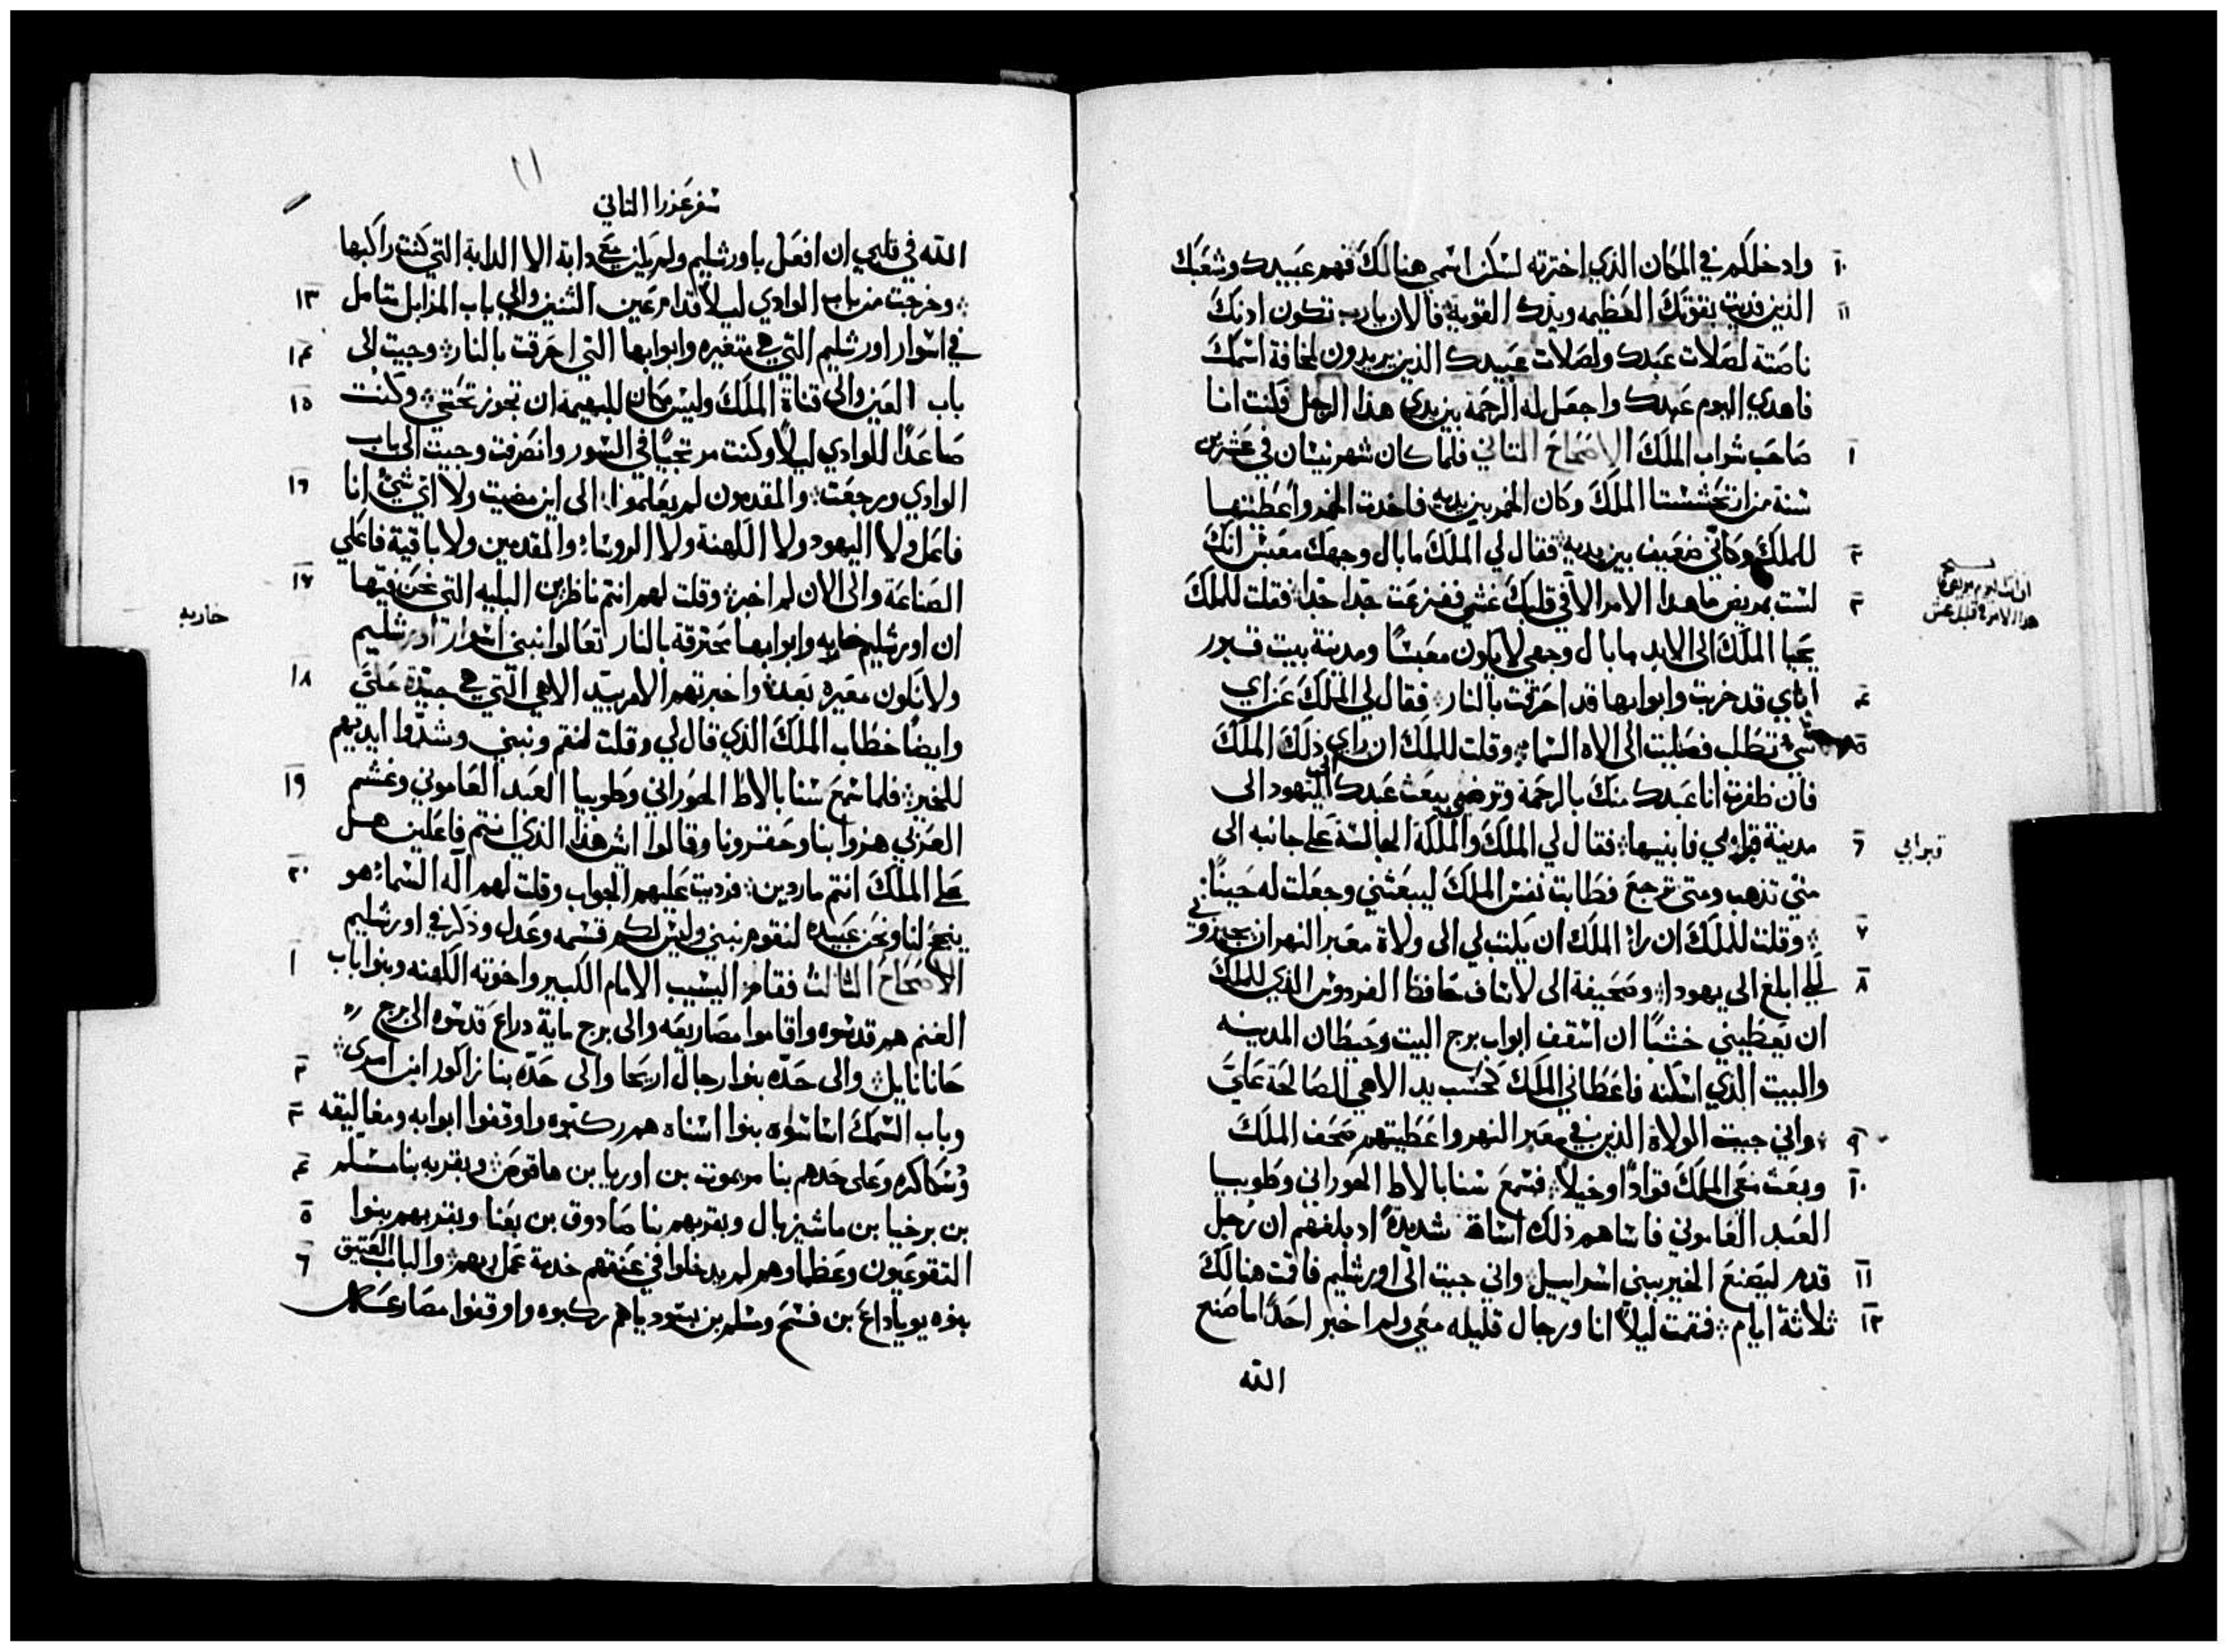 ١٠ وادخلكم في المكان الذي اخترته لسكن اسمي هنالك فهم عبيدك وشعبك
١١ الذين فديت بقوتك العظيمه ويدك القوية فالان يارب تكون ادنك
ناصتة لصلات عبدك ولصلات عبيدك الذين يريدون لمخافة اسمك
فاهدي اليوم عبدك واجعل له الرحمة بين يدي هذا الرجل فكنت انا
١ صاحب شراب الملك الاصحاح التاني فلما كان شهر نيسان في عشرين
سنة من ارتحششتا الملك وكان الخمر بين يديه فاخدت الخمر واعطيتها
٢ للملك وكاني ضعيف بين يديه فقال لي الملك ما بال وجهك معبس انك
لست بمريض ما هدا الامر الا في قلبك غش ففزعت جدا جدا فقلت للملك
٣ يحيا الملك الى الابد ما بال وجهي لا يكون معبسا ومدينة بيت قبور
٤ اباي قد خربت وابوابها قد احرقت بالنار فقال لي الملك عن اي
٥ شي تطلب فصليت الى الاه السما وقلت للملك ان راي ذلك الملك
فان ظفرت انا عبدك منك بالرحمة وترضي ببعث عبدك الى اليهود الى
٦ مدينة قبر ابي فابنيها فقال لي الملك والملكة الجالسة على جانبه الى
متي تذهب ومتى ترجع فطابت نفس الملك ليبعثني وجعلت له حينا
٧ وقلت للملك ان راا الملك ان يكتب لي الى ولاة معبر النهر ان يجيزوني
٨ لكي ابلغ الى يهودا وصحيفة الى لاساف حافظ الفردوس الذي للملك
ان يعطيني خشبا ان اسقف ابواب برج البيت وحيطان المدينه
والبيت الذي اسكنه فاعطاني الملك كحسب يد الاهي الصالحة علي
٩ واني جيت الولاة الذين في معبر النهر واعطيتهم صحف الملك
١٠ وبعث معي الملك قوادا وخيلا فسمع سنابالاط الهوراني وطوبيا
العبد العاموني فاساهم ذلك اساة شديدة اد بلغهم ان رجل
١١ قدم ليصنع الخير ببني اسراييل واني جيت الى اورشليم فاقت هنالك
١٢ ثلاثة ايام فقمت ليلا انا ورجال قليله معي ولم اخبر احدا ما صنع
الله
قبر ابي
سفر عزرا التاني
١١
الله في قلبي ان افعل باورشليم ولم يكن معي دابة الا الدابة التي كنت راكبها
١٣ وخرجت من باب الوادي ليلا قدام عين التنين والى باب المزابل متامل
١٤ في اسوار اورشليم التي هي متغيره وابوابها التي احرقت بالنار وجيت الى
١٥ باب العين والى قناة الملك وليس مكان للبهيمه ان تجوز تحتي وكنت
صاعدا للوادي ليلا وكنت مرتجيا في السور وانصرفت وجيت الى باب
١٦ الوادي ورجعت والمقدمون لم يعلموا الى اين مضيت ولا اي شي انا
فاعل ولا اليهود ولا الكهنة ولا الروسا والمقدمين ولا باقية فاعلي
١٧ الصناعة والى الان لم اخبر وقلت لهم انتم ناظرين البليه التي نحن فيها
ان اورشليم خاربه وابوابها محترقة بالنار تعالوا نبني اسوار اورشليم
١٨ ولا نكون معيره بعد واخبرتهم الامر بيد الاهي التي هي جيدة علي
وايضا خطاب الملك الذي قال لي وقلت لنقم ونبني وشدوا ايديهم
١٩ للخير فلما سمع سنابالاط الهوراني وطوبيا العبد العاموني وغشم
العربي هزوا بنا وحقرونا وقالوا ايش هذا الذي انتم فاعلين هل
٢٠ على الملك انتم ماردين فرديت عليهم الجواب وقلت لهم اله السما هو
ينجح لنا ونحن عبيده لنقوم نبني وليس لكم قسمه وعدل وذكر في اورشليم
١ الاصحاح التالت فقام اليشيب الامام الكبير واخوته الكهنه وبنوا باب
الغنم هم قدسوه واقاموا مصاريعه والى برج ماية دراع قدسوه الى برج
٢ حانانايل والى حده بنوا رجال اريحا والى حده بنا زاكور ابن امري
٣ وباب السمك اساسوه بنوا اسناه هم ركبوه واوقفوا ابوابه ومغاليقه
٤ وسكاكره وعلى حدهم بنا مريموت بن اوريا بن هاقوص وبقربه بنا مسلم
٥ بن برخيا بن ماشيزبال وبقربهم بنا صادوق بن بعنا وبقربهم بنوا
٦ التقوعيون وعظماوهم لم يدخلوا في عنقهم خدمة عمل ربهم والباب العتيق
بنوه يوياداع بن فسح ومسلم بن بسوديا هم ركبوه واوقفوا مصارعه
خاربه